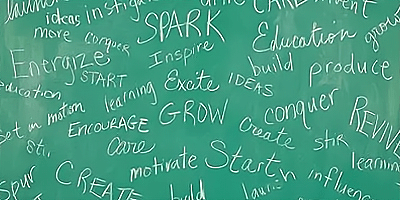 ideas
more conquer
SPARK
Inspire
Education
grow
Energize
START
build
produce
ducation
learning
Excite
IDEAS
set in motion
ENCOURAGE
GROW
conquer
REVIVE
Create
stir
Care
motivate
Start
learning
spur
CREATE
build
launch
influence